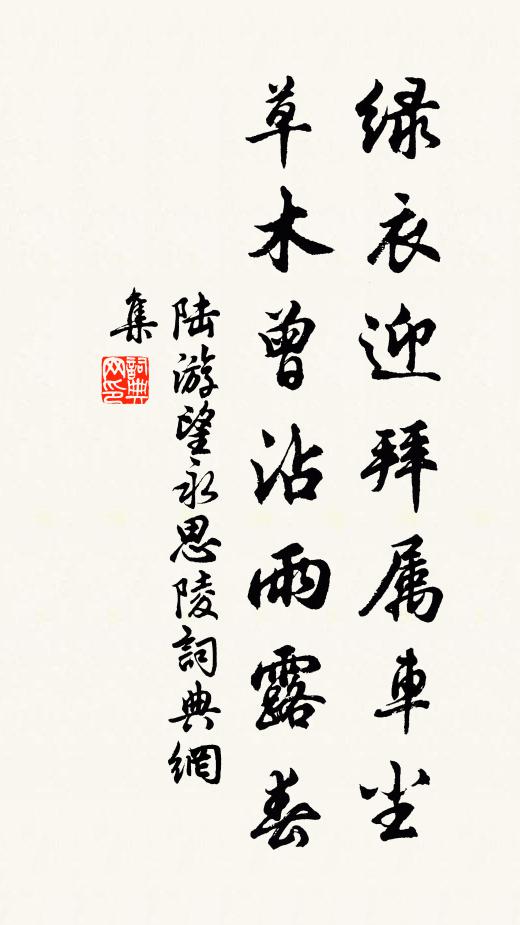 绿衣迎拜属車尘
草木曾沾雨露春
陆游望永思陵詞典網
集
詞典网印